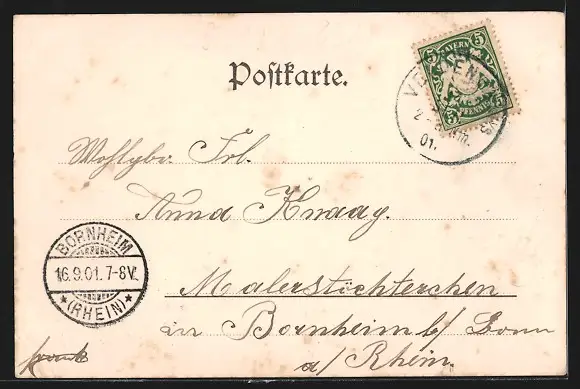 Postkarte.
BAYERN
5 5
PFENNIG
5 5
2
01.
Wohlgeb. Frl.
Anna Knaag.
BORNHEIM
16.9.01.7-8V.
(RHEIN)
Malerstöchterchen
in Bornheim b/ Bonn
a/ Rhein.